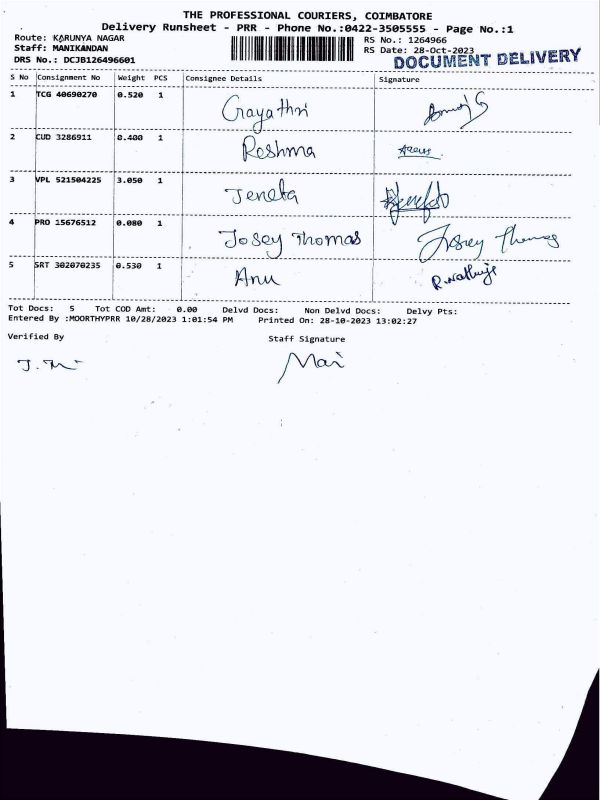 THE PROFESSIONAL COURIERS, COIMBATORE
Delivery Runsheet - PRR - Phone No.:0422-3505555 - Page No.:1
Route: KARUNYA NAGAR RS No.: 1264966
Staff: MANIKANDAN RS Date: 28-Oct-2023
DRS No.: DCJB126496601 DOCUMENT DELIVERY
S No Consignment No Weight PCS Consignee Details Signature
1 TCG 40690270 0.520 1 Gayathri
2 CUD 3286911 0.400 1 Reshma
3 VPL 521504225 3.050 1 Jeneta
4 PRO 15676512 0.080 1 Josey Thomas Josey Thomas
5 SRT 302070235 0.530 1 Anu
Tot Docs: 5 Tot COD Amt: 0.00 Delvd Docs: Non Delvd Docs: Delvy Pts:
Entered By :MOORTHYPRR 10/28/2023 1:01:54 PM Printed On: 28-10-2023 13:02:27
Verified By Staff Signature
Mai